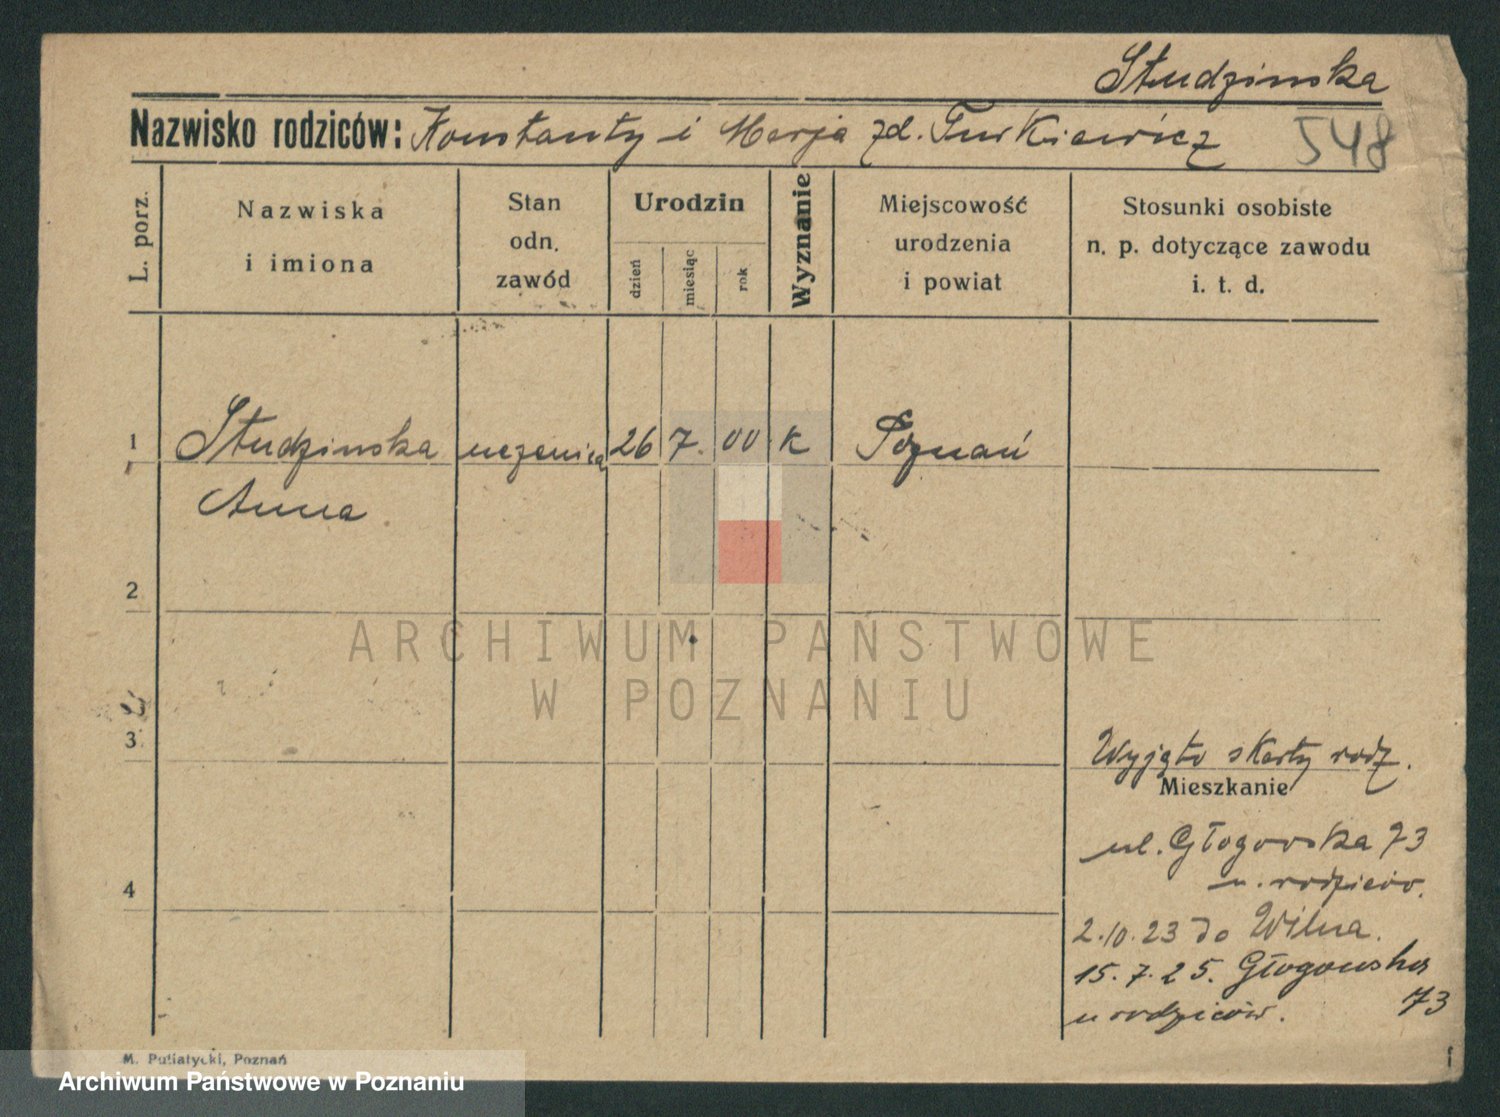 Studzinska
Nazwisko rodziców: Konstanty i Marja zd. Turkiewicz
548
L. porz.
Nazwiska
i imiona
Stan
odn.
zawód
Urodzin
dzień
miesiąc
rok
Wyznanie
Miejscowość
urodzenia
i powiat
Stosunki osobiste
n. p. dotyczące zawodu
i. t. d.
1 Studzinska uczenica 26 7. 00 k Poznań
Anna
2
3
4
Wyjęto z karty rodz.
Mieszkanie
ul. Głogowska 73
u. rodziców.
2.10.23 do Wilna.
15.7.25. Głogowska
73
u rodziców.
M. Putiatycki, Poznań
ARCHIWUM PAŃSTWOWE
W POZNANIU
Archiwum Państwowe w Poznaniu